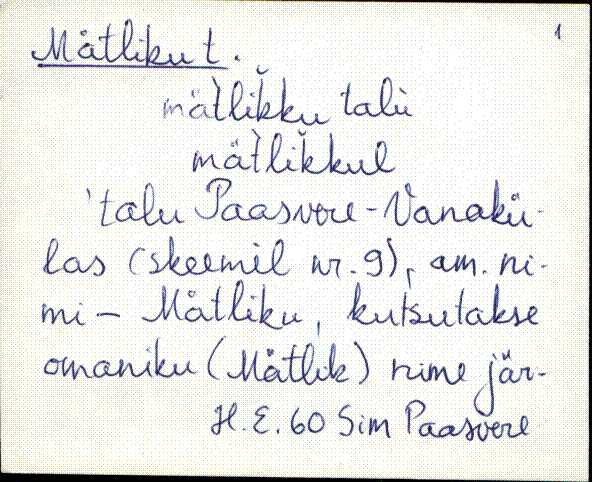 1
Mätliku t.
mät̀lik̆ku talu
mät̀lik̆kul
'talu Paasvere-Vanakü-
las (skeemil nr. 9), am. ni-
mi - Mätliku, kutsutakse
omaniku (Mätlik) nime jär-
H.E. 60 Sim Paasvere